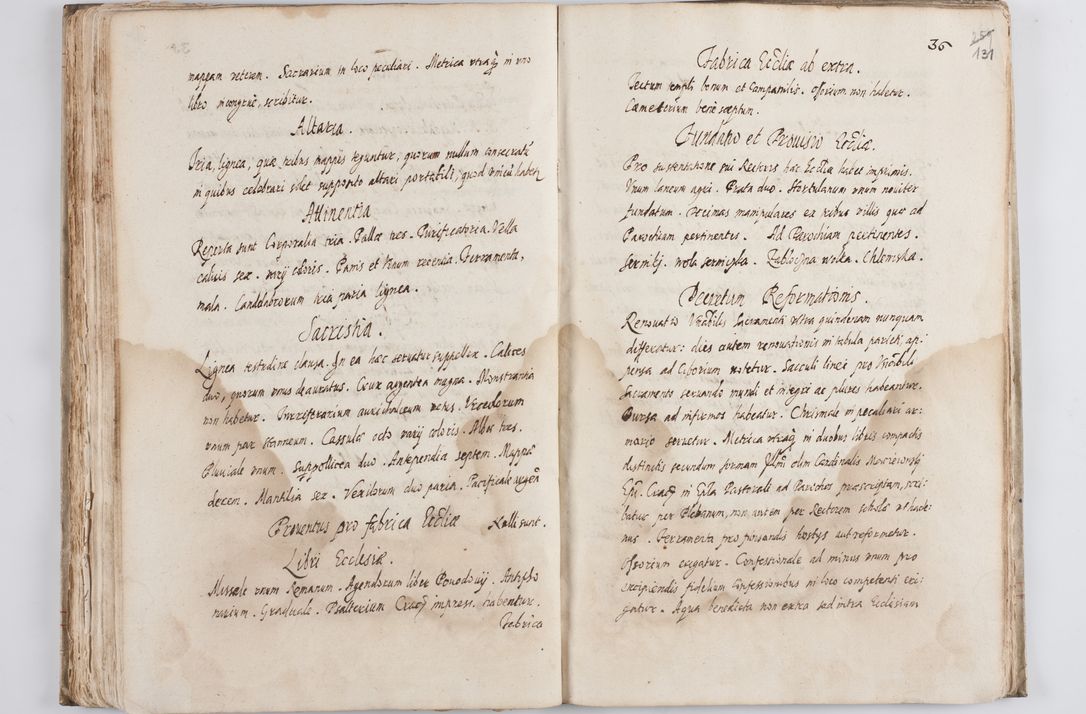 mappam veterem. Sacrarium in loco peculiari. Metrica utraq in uno
libro incongruè, scribitur.
Altaria.
Tria, lignea, quæ tribus mappis teguntur, quorum nullum consecratũ
in quibus celebrari solet supposito altari portatili, quod unicũ habet
Attinentia
Reperta sunt Corporalia tria. Pallæ tres. Purificatoria. Vella
calicis sex. varij coloris. Panis et Vinum recentia. Ferramenta,
mala. Candelabrorum tria paria lignea.
Sacristia.
Lignea testudine clausa. In ea hæc servatur suppellex. Calices
duo, quorum unus deauratus. Crux argentea magna. Monstrantia
non habetur. Turriferarium aurichalceum vetus. Urceolorum
unum par stanneum. Cassulæ octo varij coloris. Albæ tres.
Pluviale unum. Suppellicea duo. Antependia septem. Mappæ
decem. Mantilia sex. Vexillorum duo paria. Pacificale argen
Proventus pro fabrica Eccliæ Nulli sunt.
Libri Ecclesiæ.
Missale unum Romanum. Agendorum liber Powodowij. Antipho
narium. Graduale. Psalterium Crac impress. habentur.
Fabrica
36
259
131
Fabrica Eccliæ ab extra.
Tectum templi bonum et Campanilis. Ossorium non habetur.
Cæmeterium benè sæptum.
Fundatio et Provisio Eccliæ.
Pro sustentatione sui Rectoris hæc Ecclia habet imprimis.
Unum laneum agri. Prata duo. Hortulanum unum noviter
fundatum. Decimas manipulares ex tribus villis quæ ad
Parochiam pertinentes. Ad Parochiam pertinentes.
Sermily. wola sermigska. Zablocyna wolka. Chlewska.
Decretum Reformationis.
Renovatio Vrabilis Sacramenti ultra quindenam nunquam
differatur: dies autem renovationis in tabula parieti ap:
pensa ad Ciborium notetur. Sacculi lincei pro Vrabili
Sacramento servando mundi et integri ac plures habeantur.
Bursa ad infirmos habeatur. Chrismale in peculiari ar:
mario servetur. Metrica utraq in duobus libris compactis
distinctis secundum formam Illmi olim Cardinalis Macieiowskij
Epi. Crac in Epla Pastorali ad Parochos præscriptam, scri:
batur per Plebanum, non autem per Rectorem scholæ ut hacte:
nus. Ferramenta pro pinsandis hostijs aut reformetur.
Ossorium erigatur. Confessionale ad minus unum pro
excipiendis fidelium Confessionibus in loco competenti eri:
gatur. Aqua benedicta non extra sed intra Ecclesiam